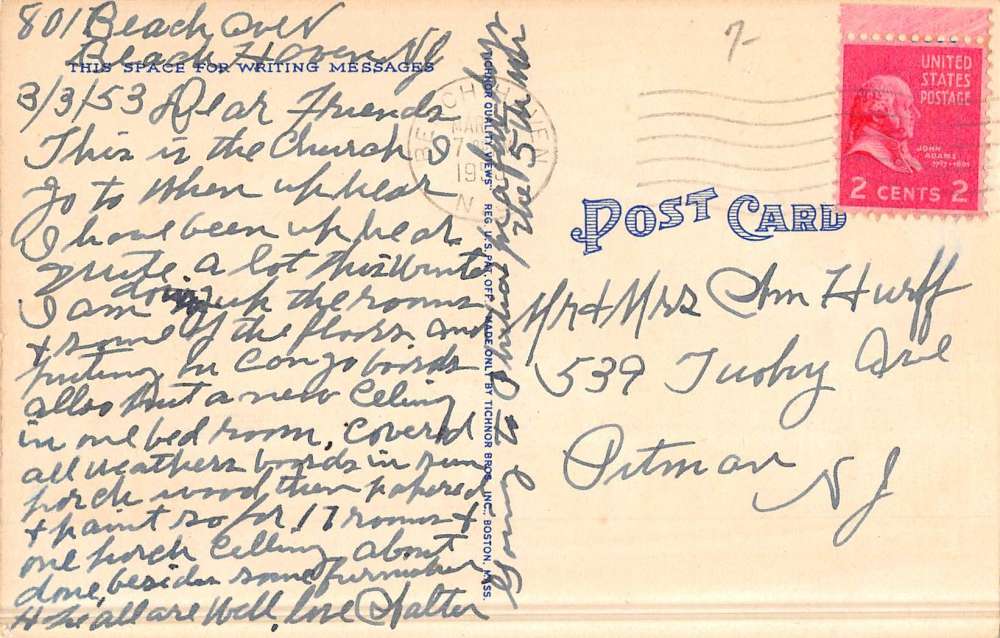 801 Beach Ave
Beach Haven NJ
THIS SPACE FOR WRITING MESSAGES
3/3/53 Dear Friends
This is the Church I
go to when up hear
I have been up hear
quite a lot this Winter
I am doing up the rooms
& some of the floors and
puting in Congo bords
allso put a new Celing
in one bed room, Covered
all weathers bords in sun
porch wood then papered
& paint so far 17 rooms &
one porch Celling about
done, besides some furniture
Hope all are Well, love Walter
Going to
the 5
TICHNOR QUALITY VIEWS, REG. U.S. PAT. OFF. MADE ONLY BY TICHNOR BROS. INC., BOSTON, MASS.
BEACH HAVEN
MAR
7
195
N
7-
UNITED
STATES
POSTAGE
JOHN
ADAMS
1797-1801
2 CENTS 2
POST CARD
Mr & Mrs Hurff
539 Ave
Pitman
NJ